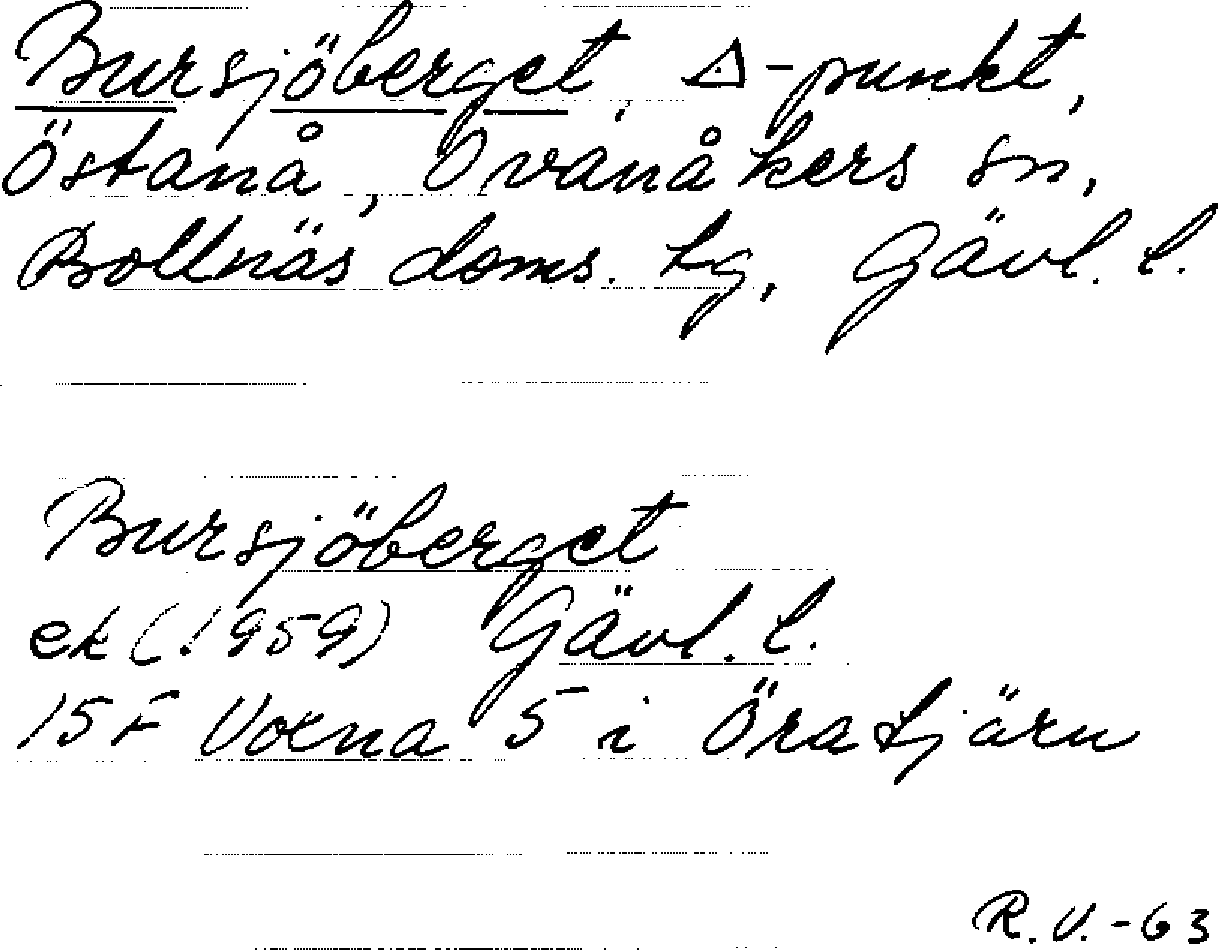 Bursjöberget, △-punkt,
Östanå, Ovanåkers sn,
Bollnäs doms. tg, Gävl. l.
Bursjöberget
ek (1959) Gävl. l.
15F Voxna 5 i Öratjärn
R.V.-63